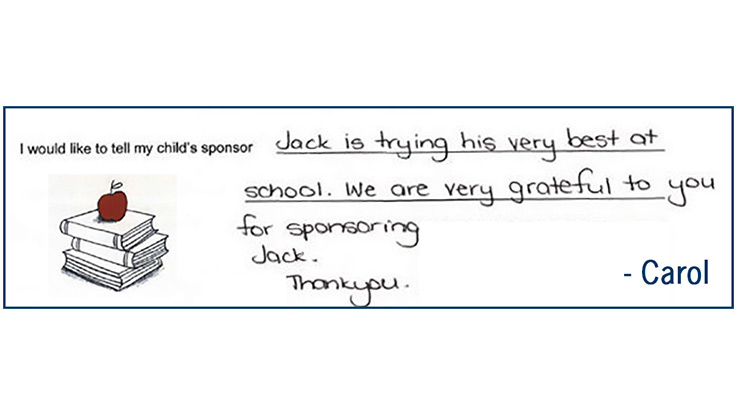 I would like to tell my child's sponsor Jack is trying his very best at
school. We are very grateful to you
for sponsoring
Jack.
Thankyou.
- Carol